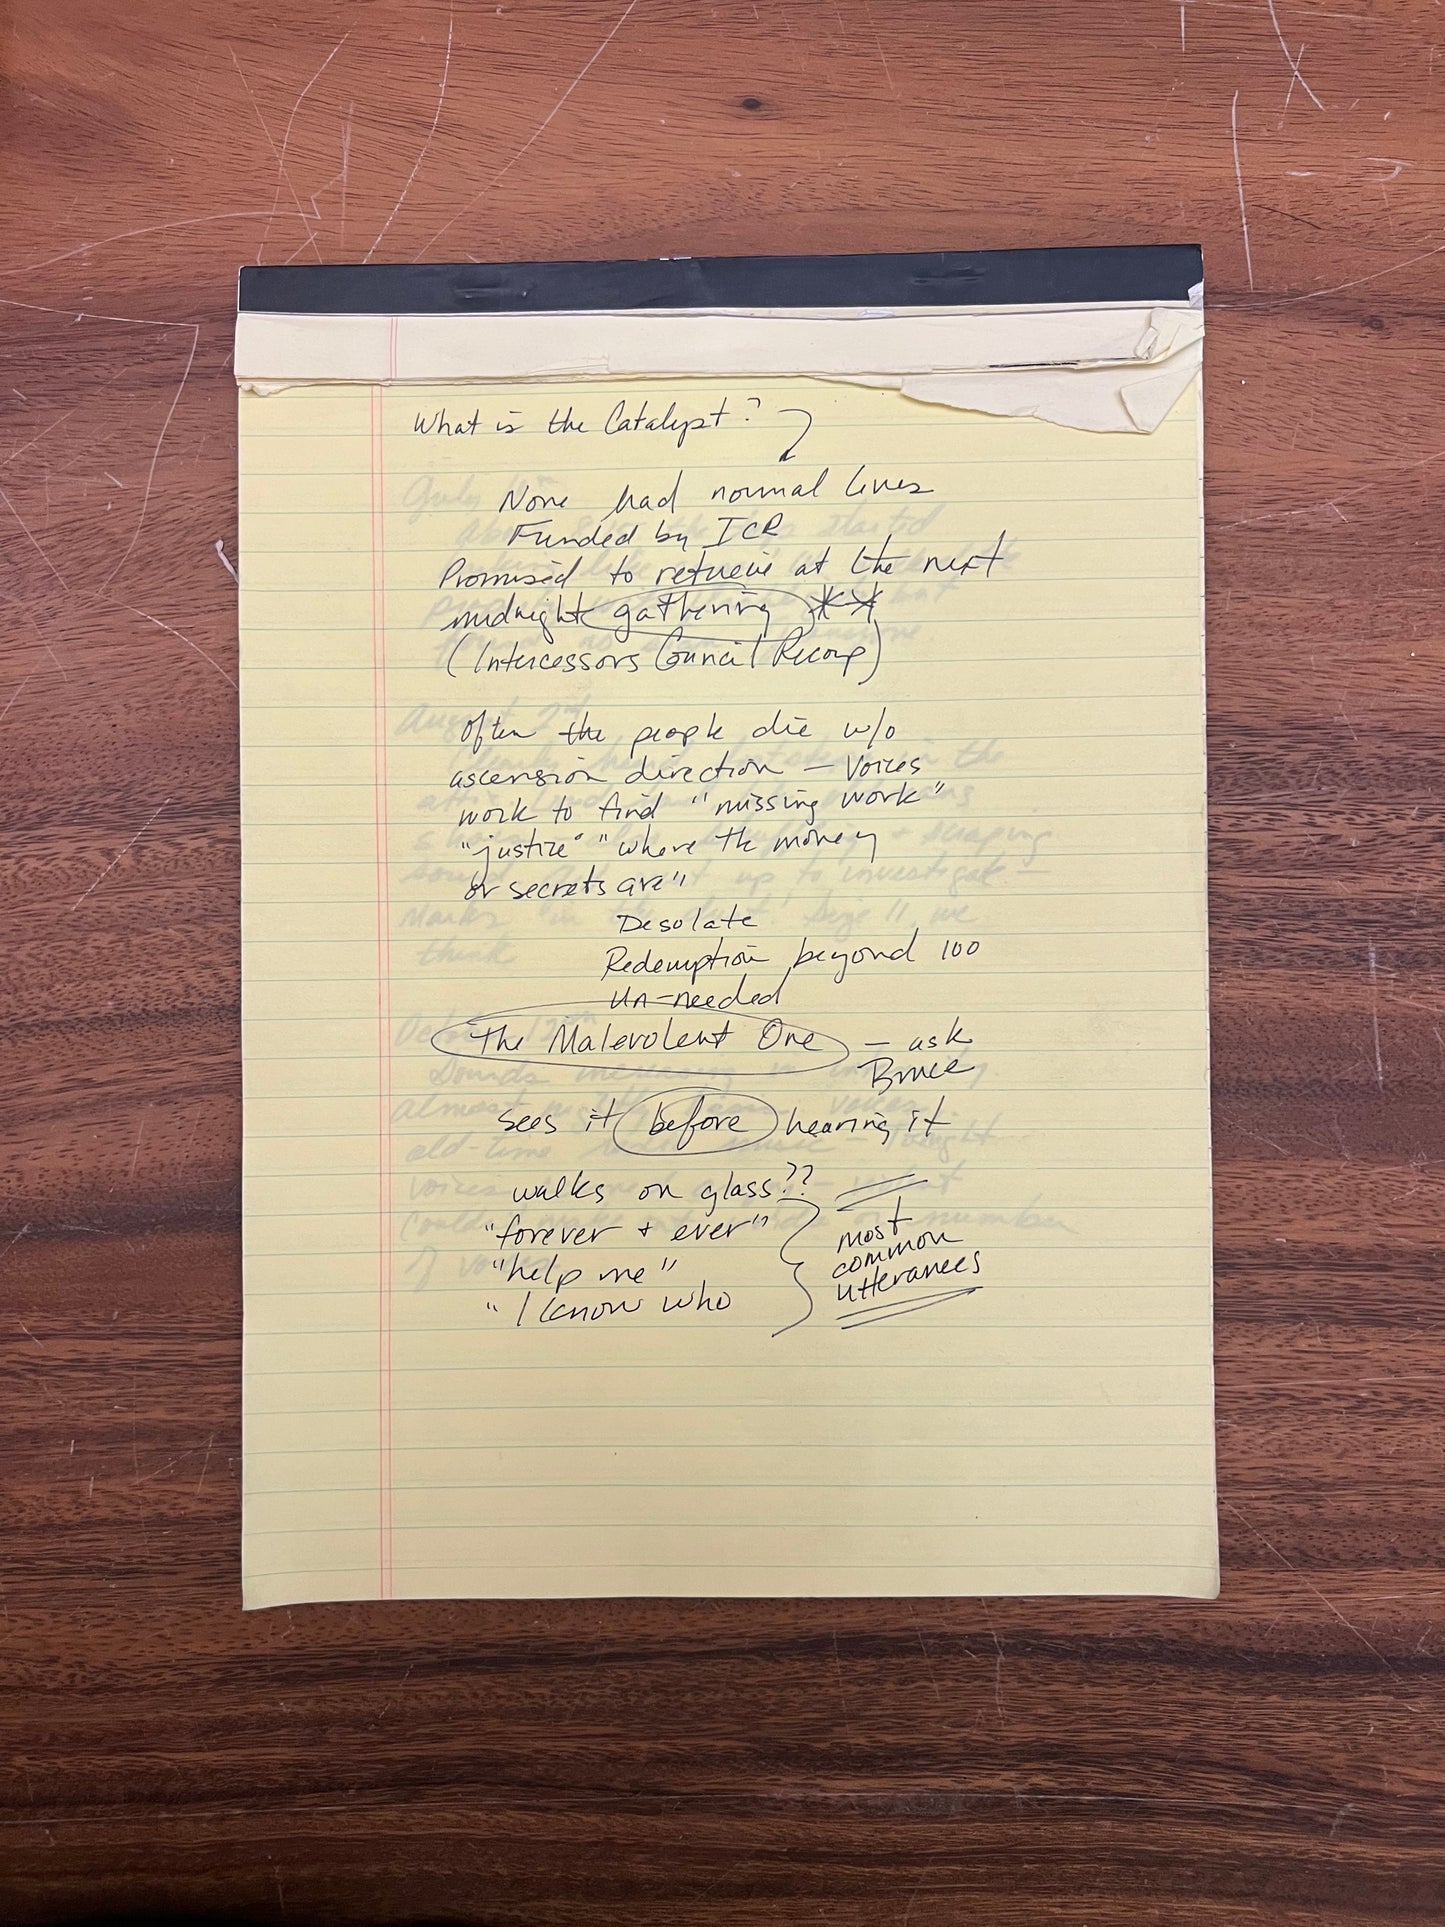 What is the Catalyst?
None had normal lives
Funded by ICR
Promised to retrieve at the next
midnight gathering **
(Intercessors Council Recomp)
Often the people die w/o
ascension direction – Voices
work to find "missing work"
"justice" "where the money
or secrets are"
Desolate
Redemption beyond 100
un-needed
The Malevolent One – ask
Bruce
sees it before hearing it
walks on glass??
"forever + ever"
"help me"
"I know who
most
common
utterances